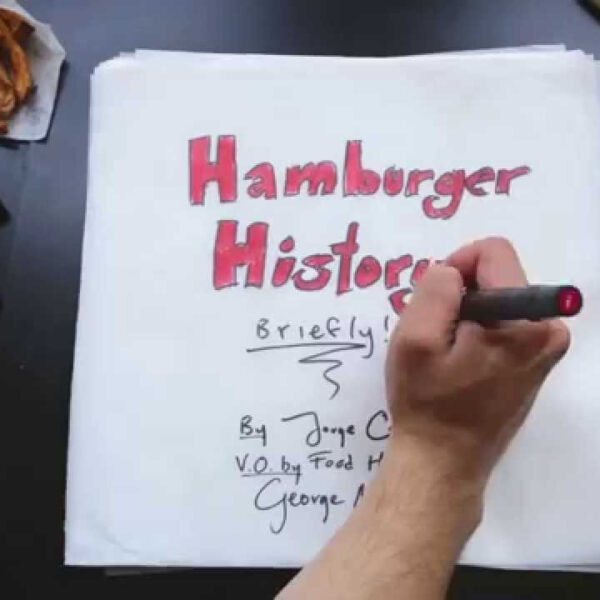 Hamburger
History
Briefly!
By Jorge
V.O. by Food
George